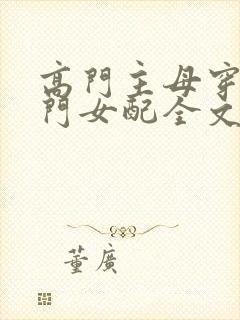 高門主母穿
門女配全文
董廣